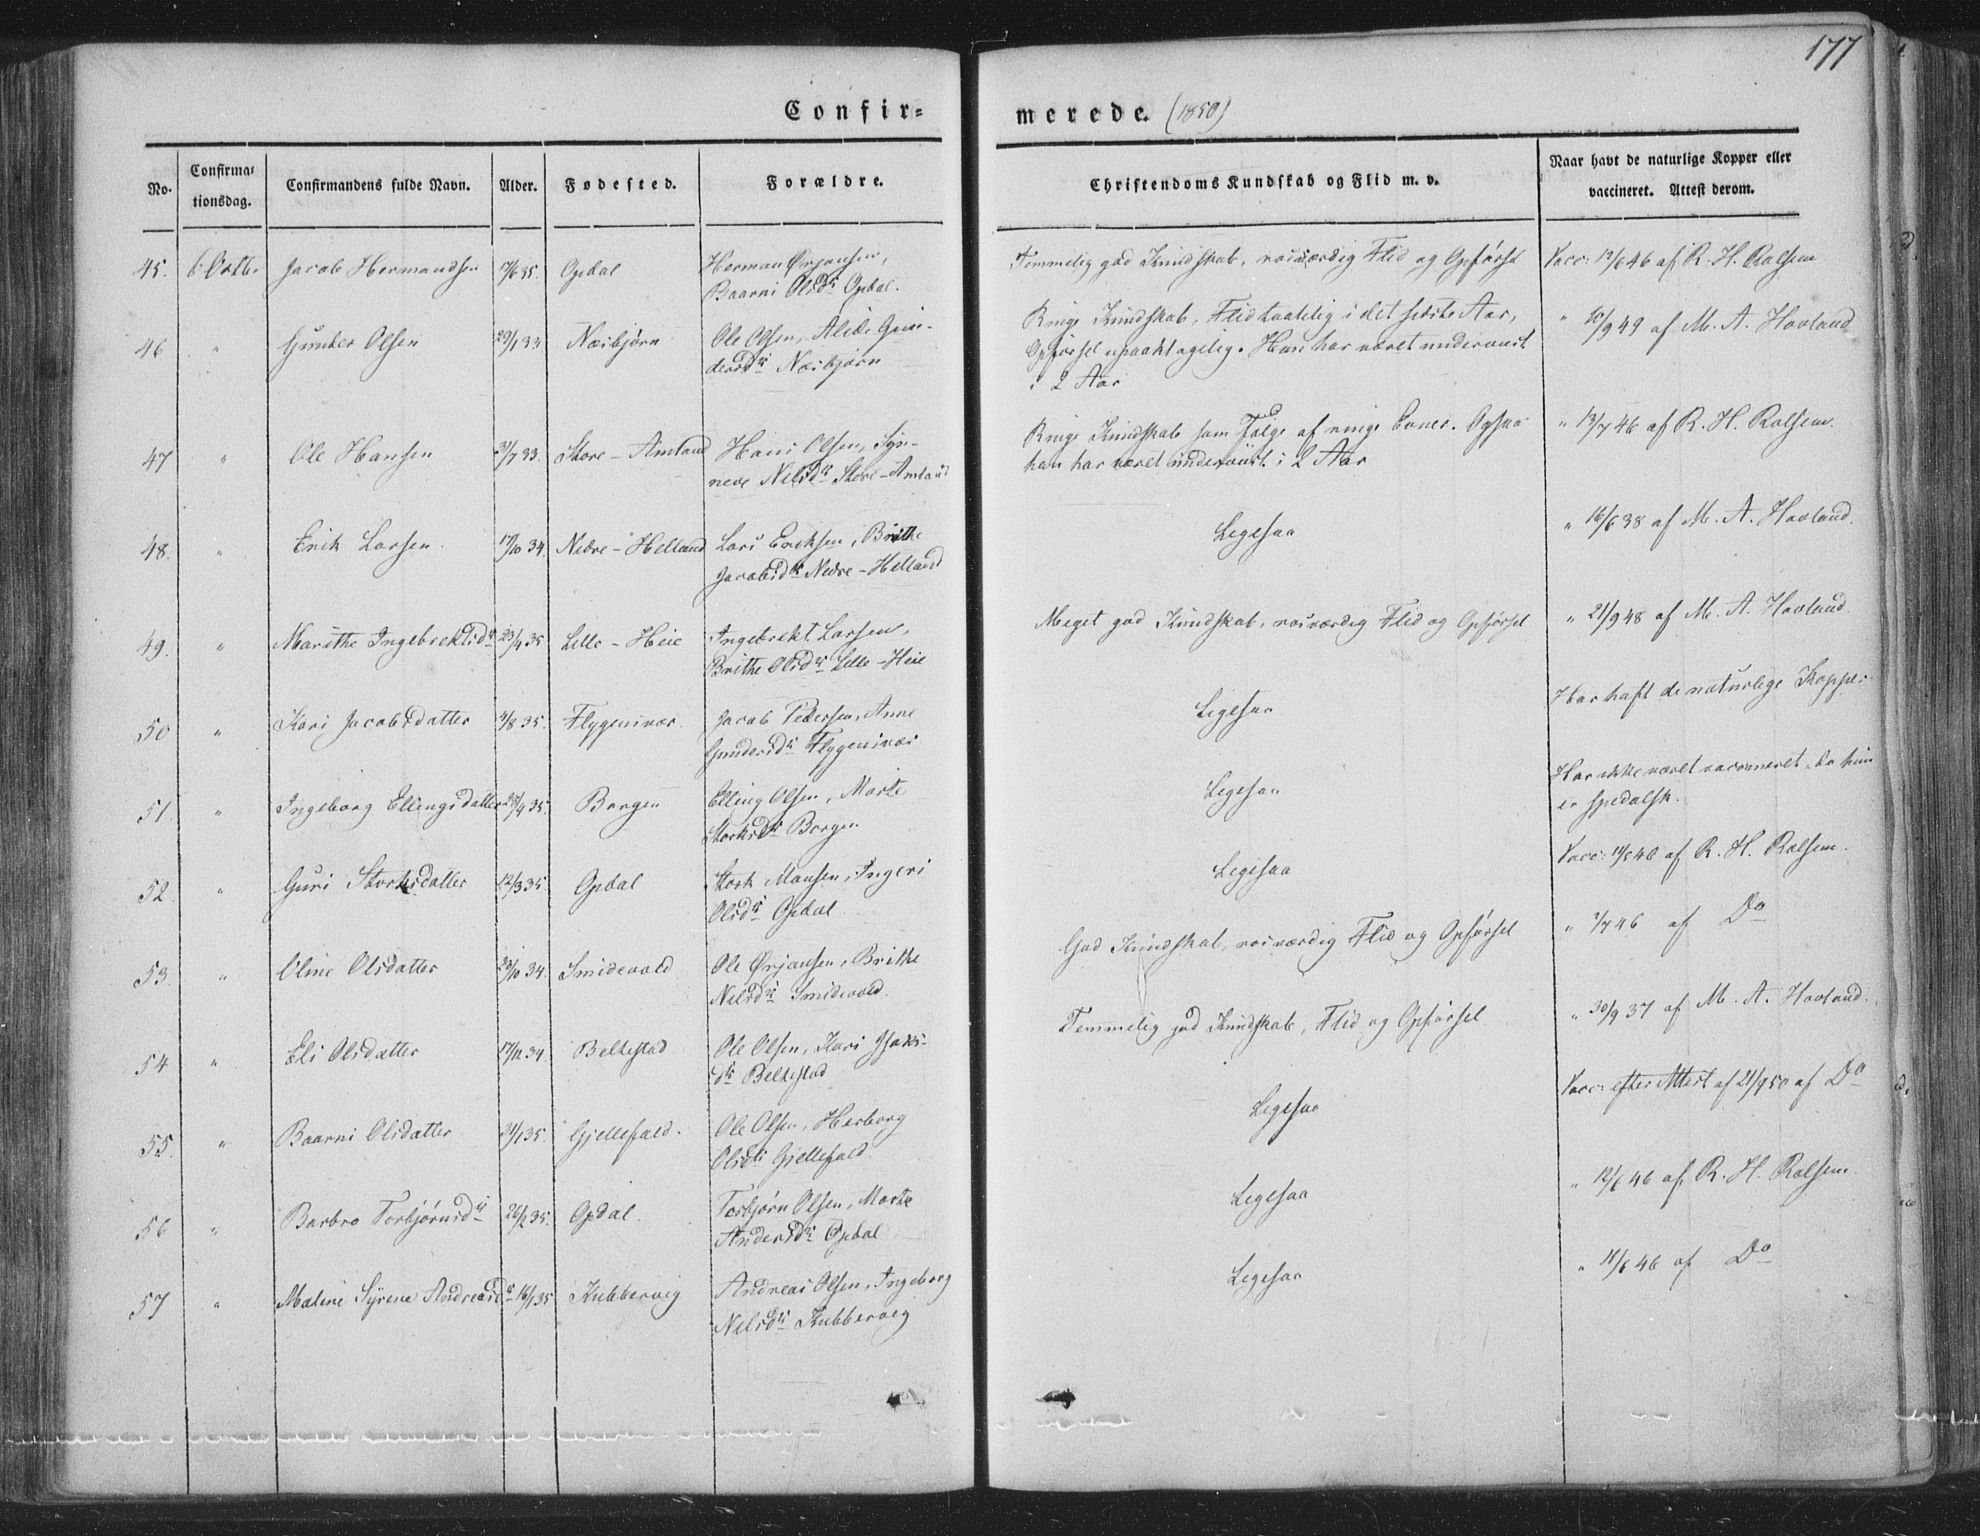 177
Confir=
merede. (1850)
No.
Confirma=
tionsdag.
Confirmandens fulde Navn.
Alder.
Fødested.
Forældre.
Christendoms Kundskab og Flid m. v.
Naar havt de naturlige Kopper eller
vaccineret. Attest derom.
45. 6 Octbr Jacob Hermandsen 35. Opdal Herman Ørjansen,
Baarni Olsdr Opdal.
Temmelig god Kundskab, rosværdig Flid og Opførsel
Vacc: 12/6 46 af R. H. Rolsem
46 " Gunder Olsen 29/1 33 Næsbjørn Ole Olsen, Alide Gun-
dersdr Næsbjørn
Ringe Kundskab, Flid taalelig i det sidste Aar,
Opførsel upaaklagelig. Han har været underviist
i 2 Aar
" 10/9 49 af M. A. Hovland
47 " Ole Hansen 3/7 33. Store-Amland Hans Olsen, Syn-
neve Nilsdr Store-Amland
Ringe Kundskab som Følge af ringe Evner. Ogsaa
han har været underviist i 2 Aar
" 13/7 46 af R. H. Rolsem.
48. " Erik Larsen. 17/10 34. Nedre-Helland Lars Eriksen, Brithe
Jacobsdr Nedre-Helland
Ligesaa
" 16/6 38 af M. A. Hovland.
49. " Marithe Ingebrektsdr 23/4 35 Lille-Heie Ingebrekt Larsen,
Brithe Olsdr Lille-Heie
Meget god Kundskab, rosværdig Flid og Opførsel
" 21/9 48 af M. A. Hovland.
50 " Kari Jacobsdatter 3/8 35. Flygensvær. Jacob Pedersen, Anne
Gundersdr Flygensvær
Ligesaa
Har haft de naturlige Kopper
51. " Ingeborg Ellingsdatter 28/4 35. Borgen Elling Olsen, Marte
Storksdr Borgen
Ligesaa
Har ikke været vaccineret, da hun
er spedalsk.
52 " Guri Storksdatter 12/3 35. Opdal Stork Monsen, Ingeri
Olsdr Opdal
Ligesaa
Vacc: 11/6 46 af R. H. Rolsem.
53. " Oline Olsdatter 23/10 34. Smidevold Ole Ørjansen, Brithe
Nilsdr Smidevold.
God Kundskab, rosværdig Flid og Opførsel
" 1/7 46 af Do
54 " Eli Olsdatter 17/11 34. Beltestad Ole Olsen, Kari Isaks-
dr Beltestad
Temmelig god Kundskab, Flid og Opførsel
" 30/9 37 af M. A. Hovland.
55. " Baarni Olsdatter 31/1 35. Gjellefald. Ole Olsen, Herborg
Olsdr Gjellefald.
Ligesaa
Vacc: efter Attest af 21/9 50 af Do
56 " Barbro Torbjørnsdr 26/2 35. Opdal. Torbjørn Olsen, Marte
Andersdr Opdal
Ligesaa
" 12/6 46 af R. H. Rolsem.
57 " Maline Syrene Andreasdr 16/1 35 Kubbervig Andreas Olsen, Ingeborg
Nilsdr Kubbervig
Ligesaa
" 11/6 46 af Do